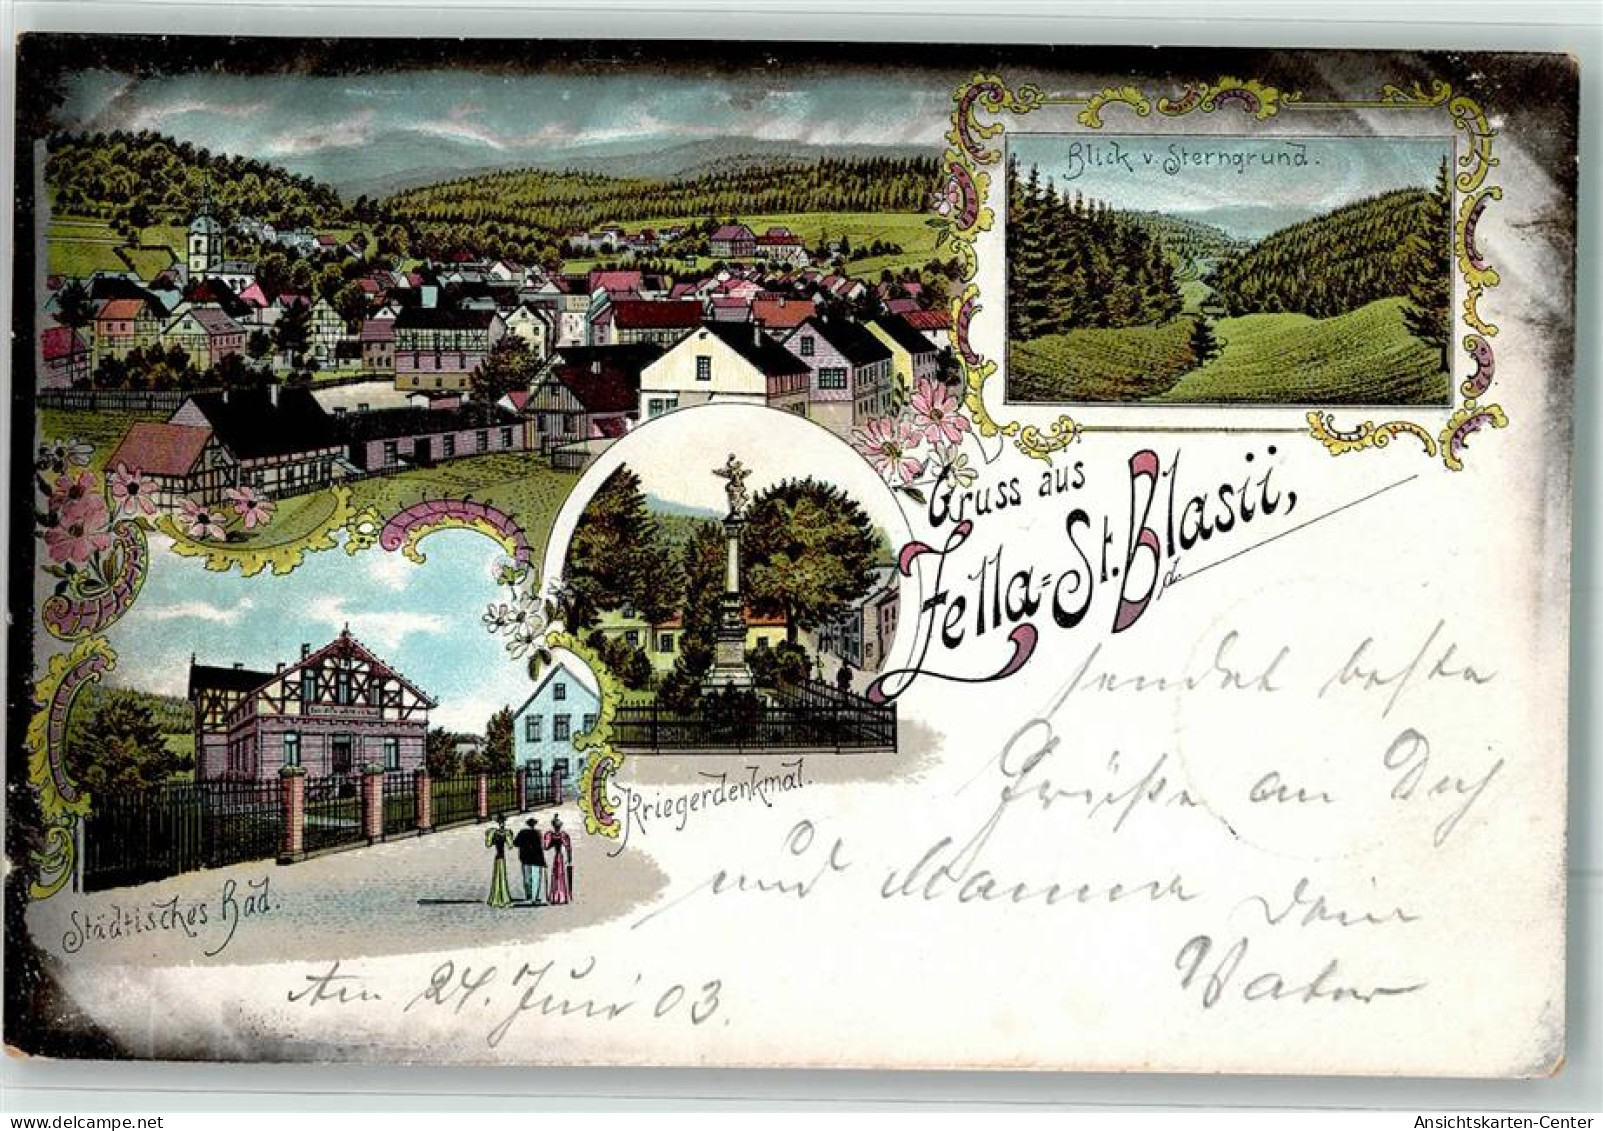 Blick v Sterngrund.
Gruss aus
Zella=St. Blasii,
d.
sendet beste
Grüße an Dich
und Mama Dein
Vater
Am 24. Juni 03.
Kriegerdenkmal.
Städtisches Bad.
Ansichtskarten-Center